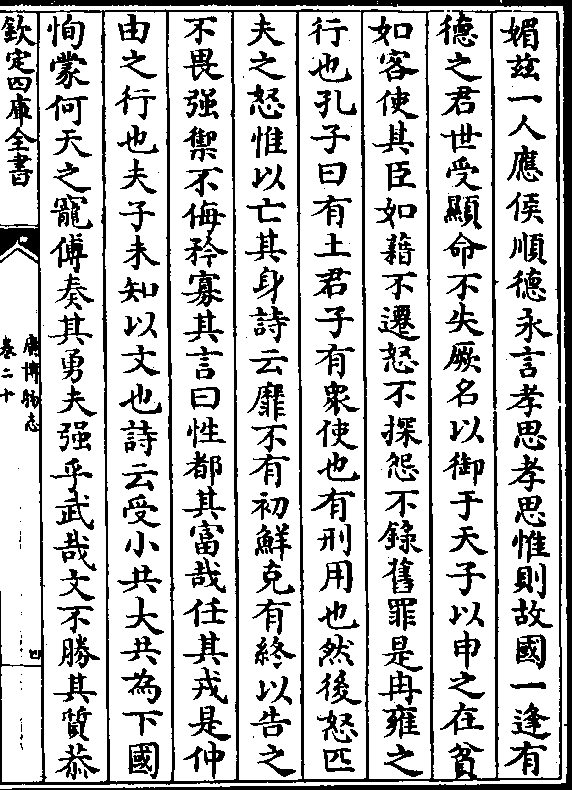 媚兹一人應侯順德永言孝思孝思惟則故國一逢有
德之君世受顯命不失厥名以御于天子以申之在貧
如客使其臣如藉不遷怒不探怨不錄舊罪是冉雍之
行也孔子曰有土君子有衆使也有刑用也然後怒匹
夫之怒惟以亡其身詩云靡不有初鮮克有終以告之
不畏强禦不侮矜寡其言曰性都其富哉任其戎是仲
由之行也夫子未知以文也詩云受小共大共為下國
恂蒙何天之寵傅奏其勇夫强乎武哉文不勝其質恭
欽定四庫全書
廣博物志
卷二十
四